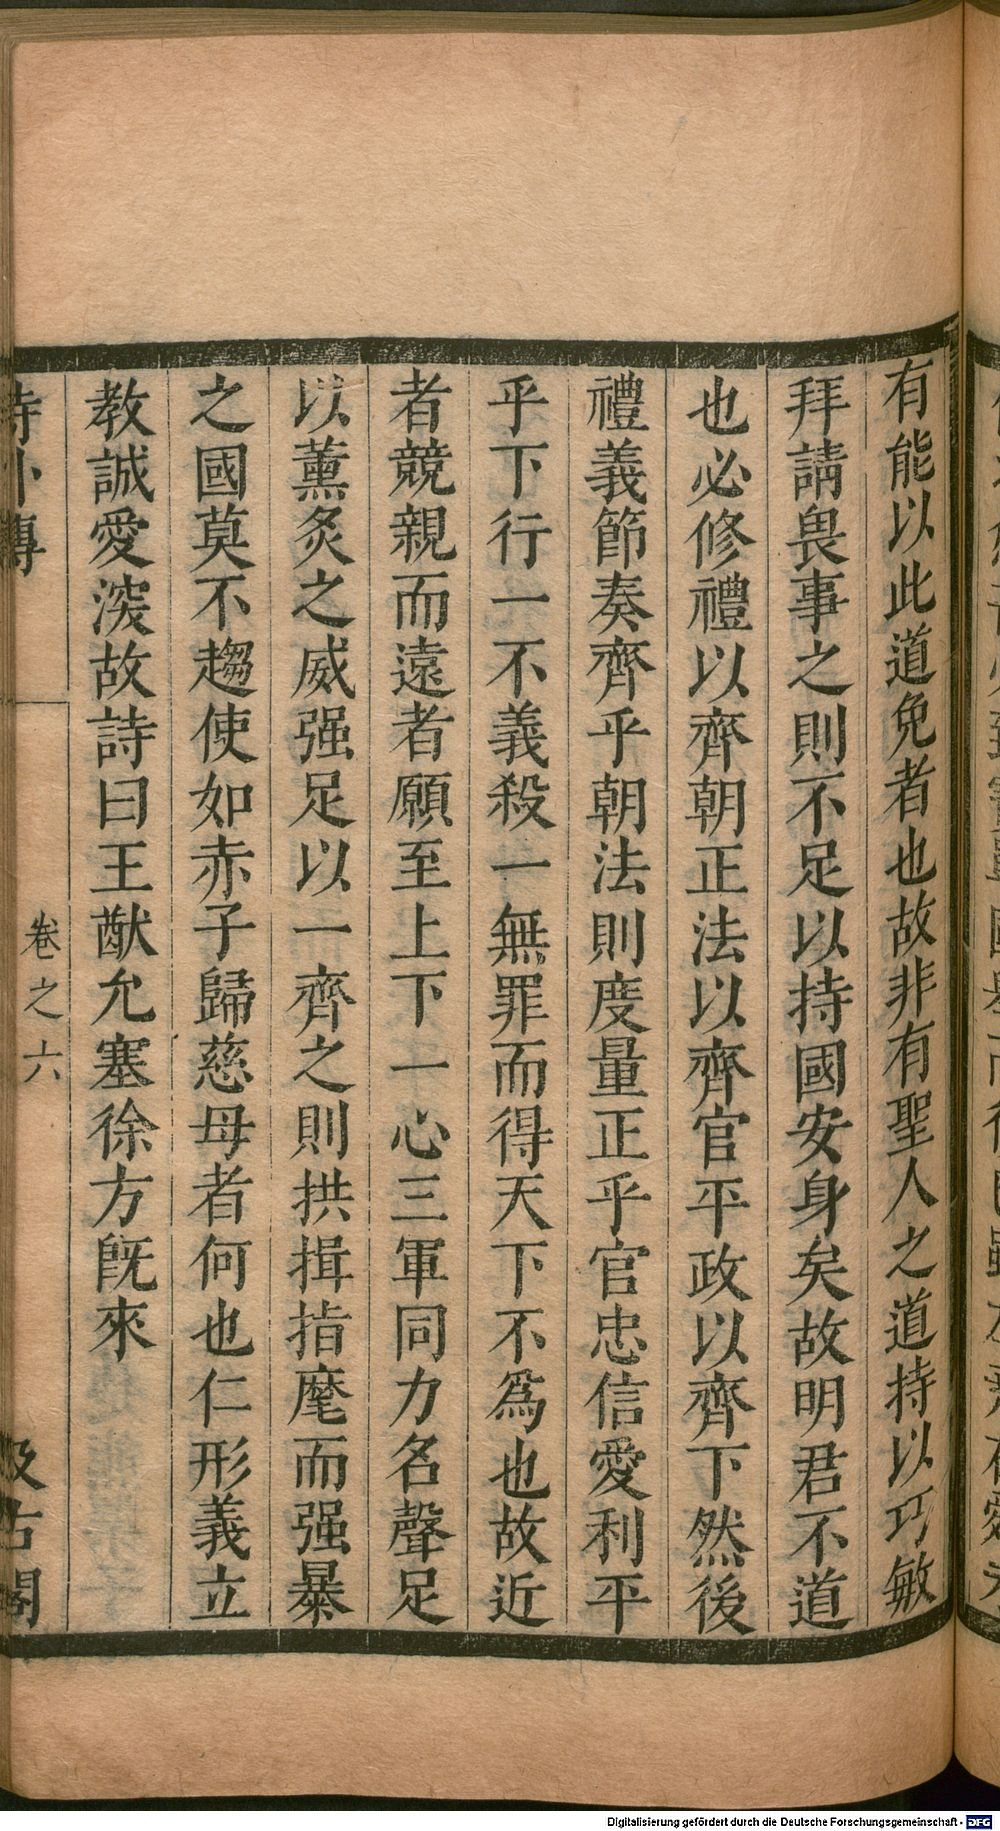 有能以此道免者也故非有聖人之道持以巧敏
拜請畏事之則不足以持國安身矣故明君不道
也必修禮以齊朝正法以齊官平政以齊下然後
禮義節奏齊乎朝法則度量正乎官忠信愛利平
乎下行一不義殺一無罪而得天下不爲也故近
者競親而遠者願至上下一心三軍同力名聲足
以薰炙之威强足以一齊之則拱揖指麾而强暴
之國莫不趨使如赤子歸慈母者何也仁形義立
教誠愛湥故詩曰王猷允塞徐方旣來
詩外傳
卷之六
汲古閣
Digitalisierung gefördert durch die Deutsche Forschungsgemeinschaft - DFG